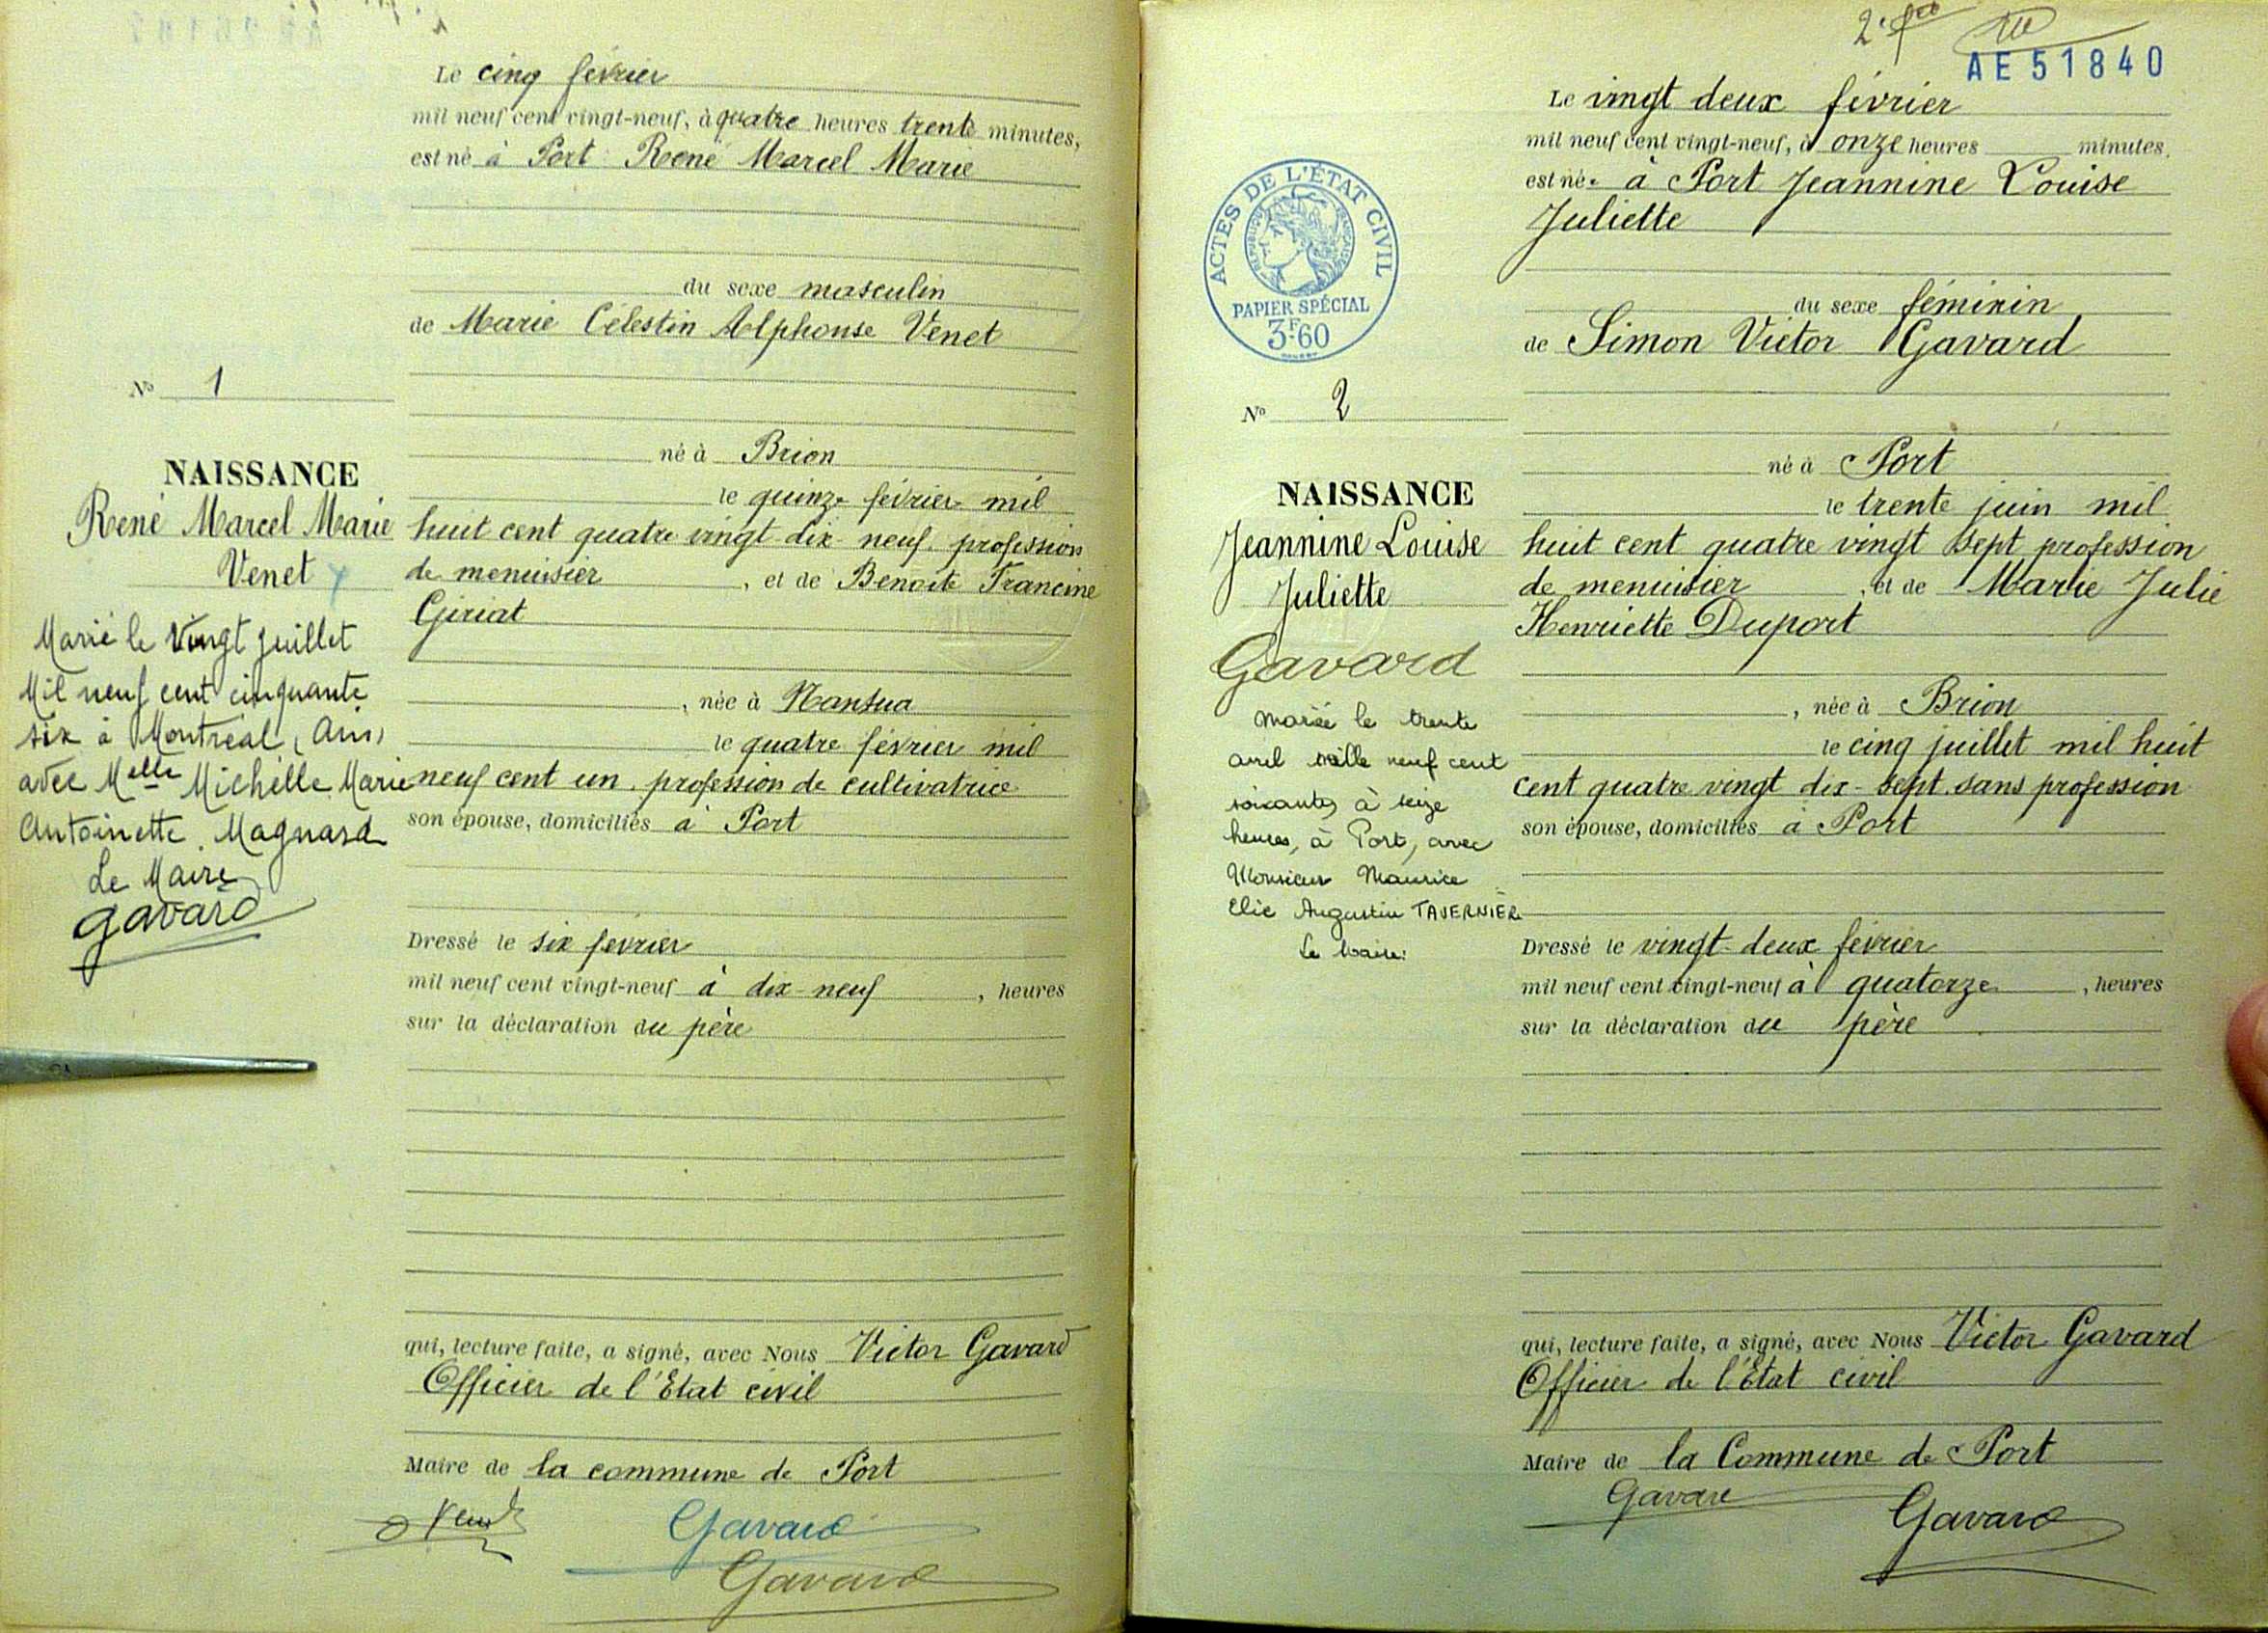 Le cinq février
mil neuf cent vingt-neuf, à quatre heures trente minutes,
est né à Port René Marcel Marie
du sexe masculin
de Marie Célestin Alphonse Venet
né à Brion
le quinze février mil
huit cent quatre vingt-dix-neuf. profession
de menuisier, et de Benoite Francine
Giriat
, née à Nantua
le quatre février mil
neuf cent un. profession de cultivatrice
son épouse, domiciliés à Port
Dressé le six février
mil neuf cent vingt-neuf à dix-neuf, heures
sur la déclaration du père
qui, lecture faite, a signé, avec Nous Victor Gavard
Officier de l'Etat civil
Maire de la commune de Port
Gavard
Gavard
No 1
NAISSANCE
René Marcel Marie
Venet
Marié le Vingt juillet
Mil neuf cent cinquante
six à Montréal (Ain)
avec Melle Michèlle Marie
Antoinette Magnard
Le Maire
Gavard
AE51840
Le vingt deux février
mil neuf cent vingt-neuf, à onze heures minutes.
est née à Port Jeannine Louise
Juliette
du sexe féminin
de Simon Victor Gavard
né à Port
le trente juin mil
huit cent quatre vingt sept profession
de menuisier, et de Marie Julie
Henriette Duport
, née à Brion
le cinq juillet mil huit
cent quatre vingt dix-sept. sans profession
son épouse, domiciliés à Port
Dressé le vingt-deux février
mil neuf cent vingt-neuf à quatorze, heures
sur la déclaration du père
qui, lecture faite, a signé, avec Nous Victor Gavard
Officier de l'Etat civil
Maire de la Commune de Port
Gavard
Gavard
ACTES DE L'ÉTAT CIVIL
RÉPUBLIQUE FRANÇAISE
PAPIER SPÉCIAL
3F60
No 2
NAISSANCE
Jeannine Louise
Juliette
Gavard
Mariée le trente
avril mille neuf cent
soixante, à seize
heures, à Port, avec
Monsieur Maurice
Elie Augustin TAVERNIER
Le Maire: